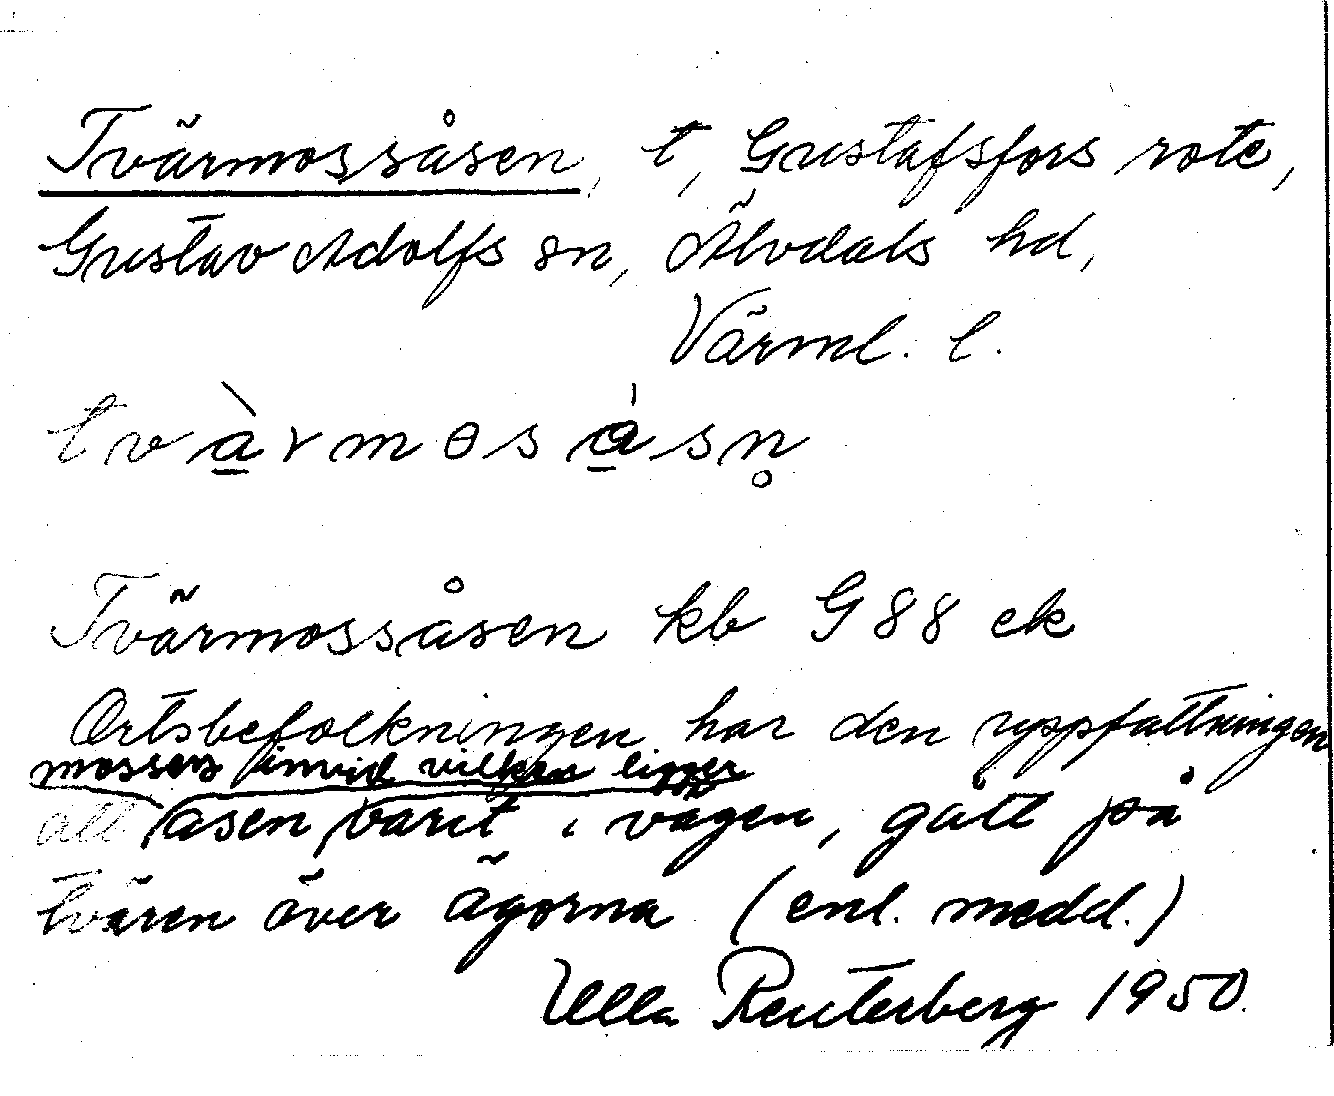 Tvärmossåsen, t, Gustafsfors rote,
Gustav Adolfs sn, Älvdals hd,
Värml. l.
tvàrmɵsåsn̥
Tvärmossåsen kb G 88 ek
Ortsbefolkningen har den uppfattningen
mossen invid vilken ligger
att åsen varit i vägen, gått på
tvären över ägorna (enl. medd.)
Ulla Reuterberg 1950.